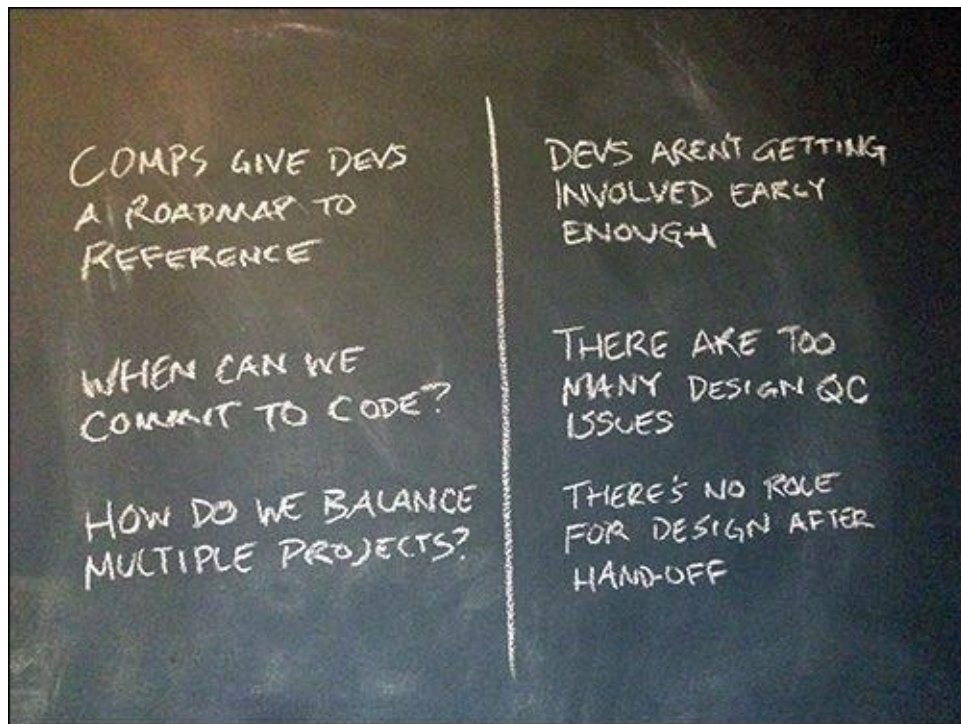 COMPS GIVE DEVS
A ROADMAP TO
REFERENCE
WHEN CAN WE
COMMIT TO CODE?
HOW DO WE BALANCE
MULTIPLE PROJECTS?
DEVS AREN'T GETTING
INVOLVED EARLY
ENOUGH
THERE ARE TOO
MANY DESIGN QC
ISSUES
THERE'S NO ROLE
FOR DESIGN AFTER
HAND-OFF